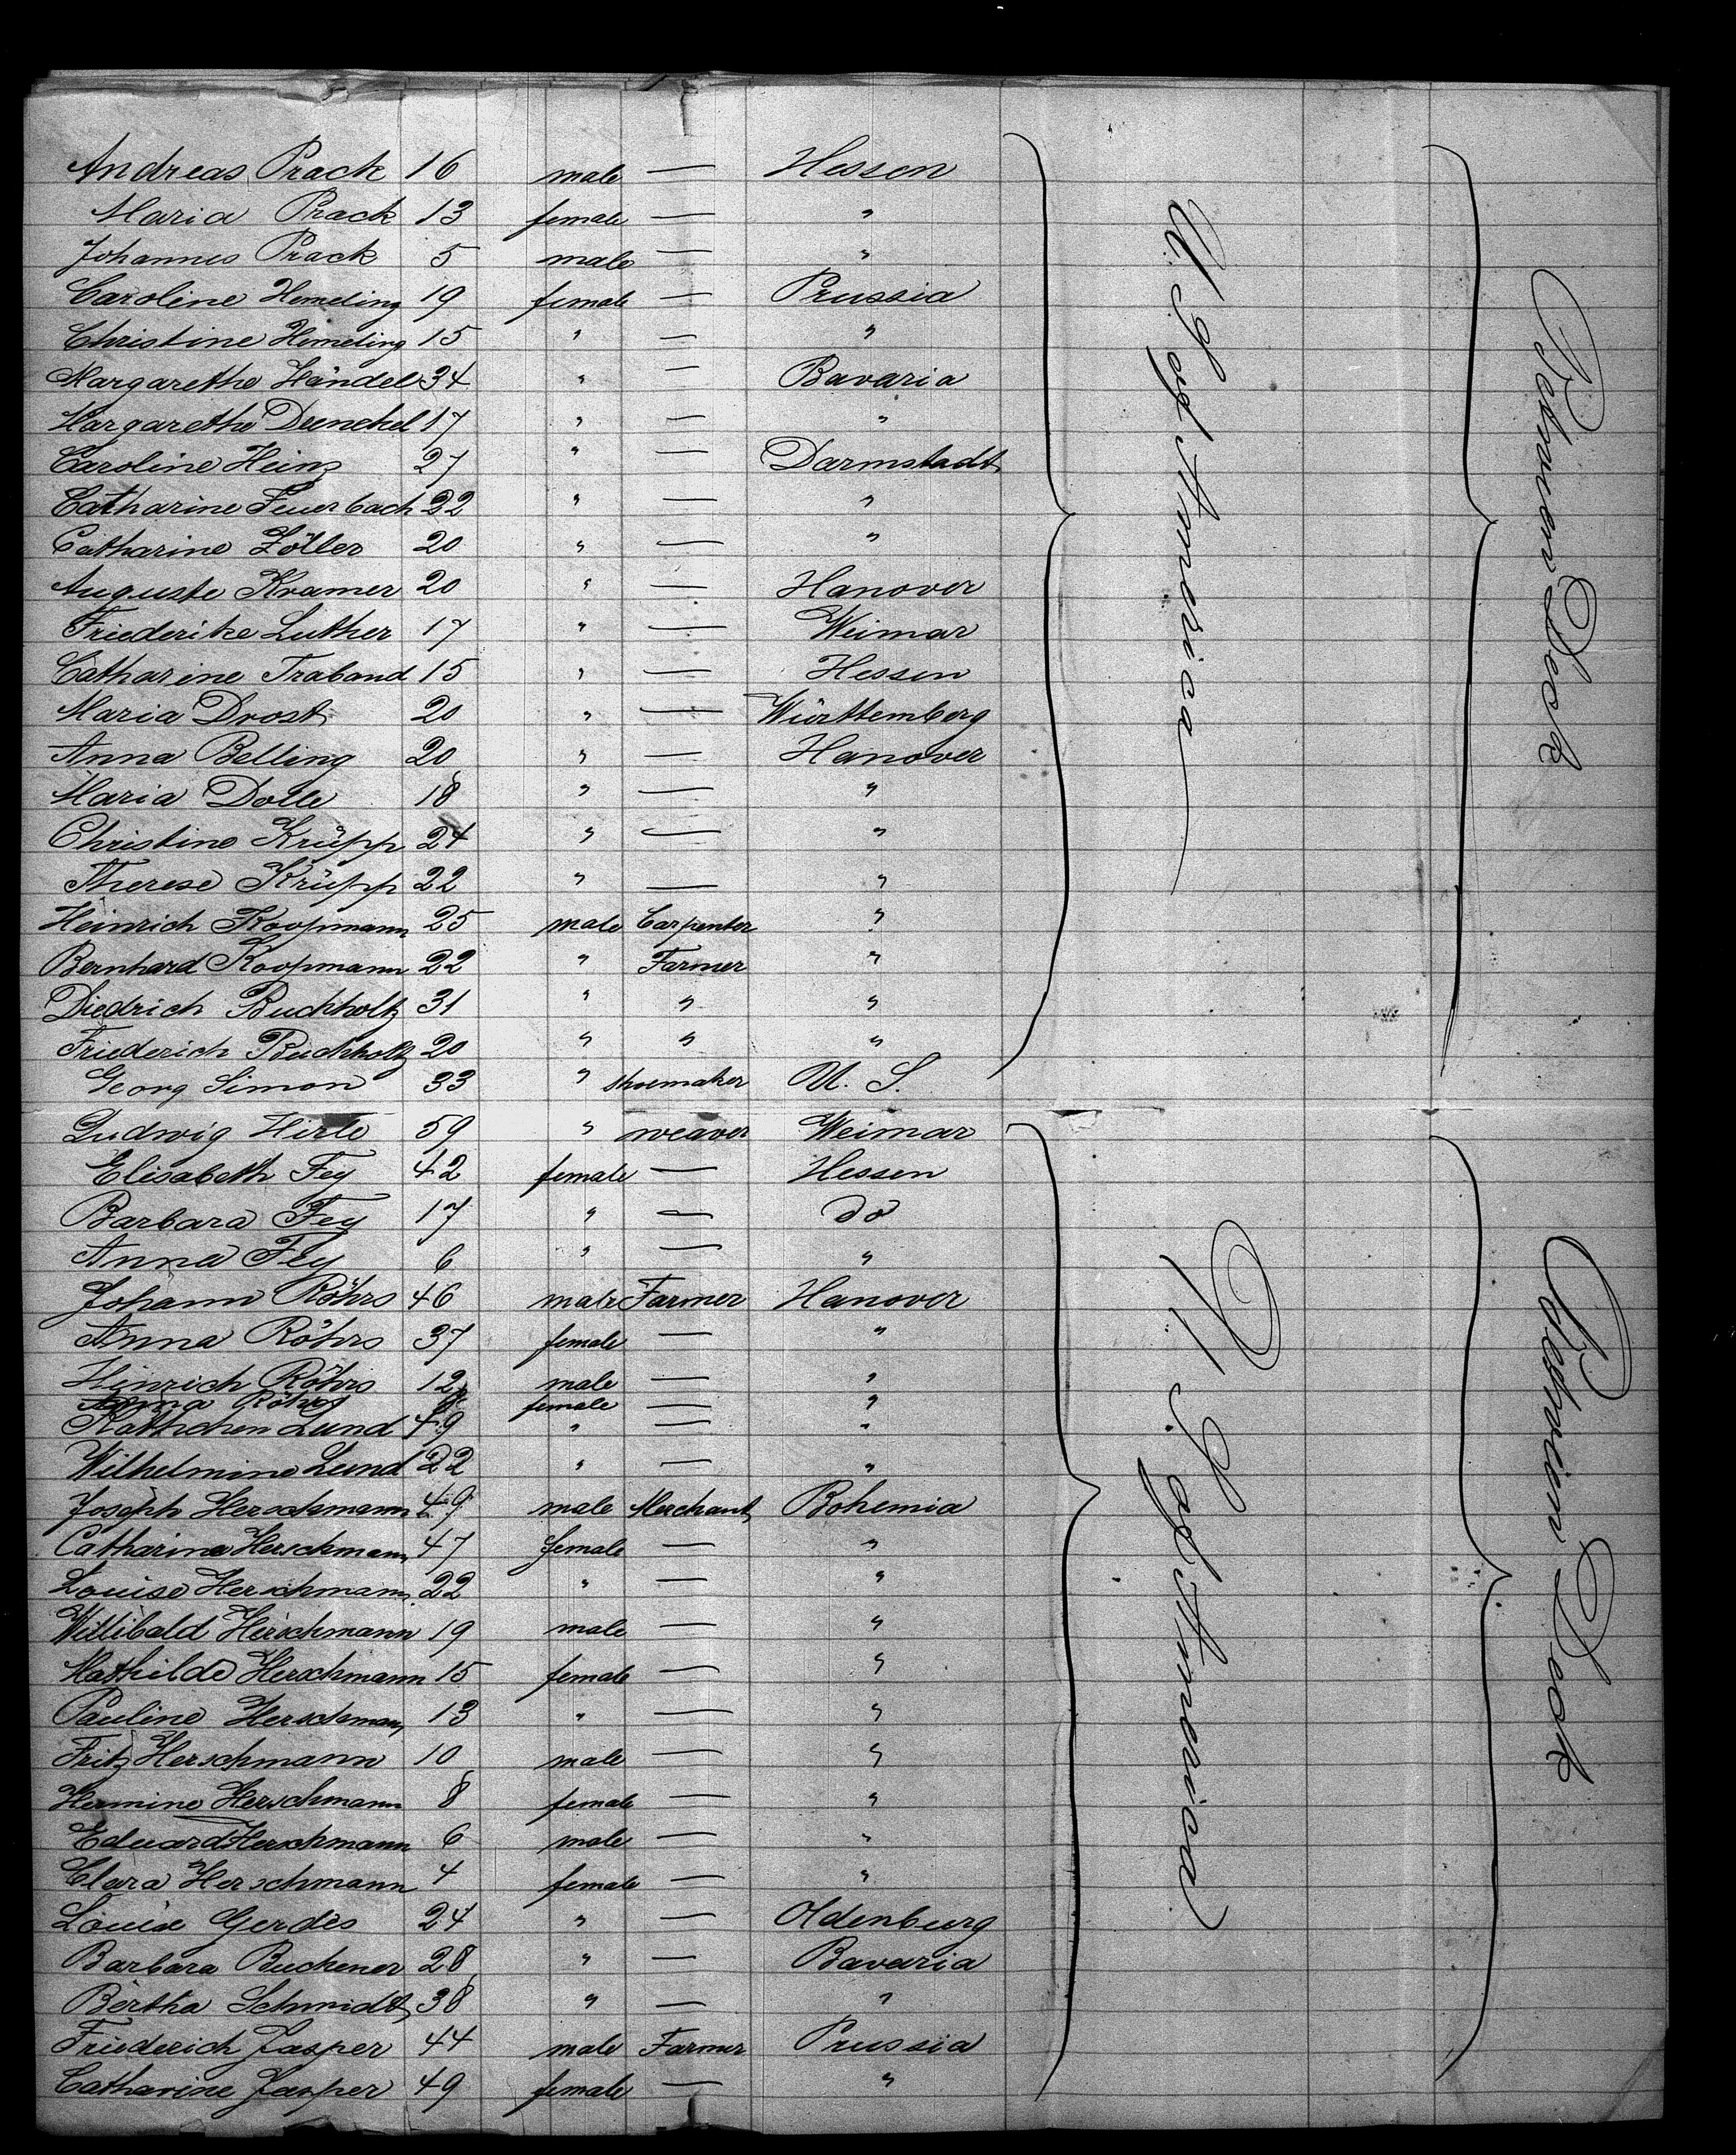 Andreas Prack 16 male — Hessen
Maria Prack 13 female — "
Johannes Prack 5 male — "
Caroline Hemeling 19 female — Prussia
Christine Hemeling 15 " — "
Margarethe Händel 34 " — Bavaria
Margarethe Dunckel 17 " — "
Caroline Heinz 27 " — Darmstadt
Catharine Feuerbach 22 " — "
Catharine Zöller 20 " — "
Auguste Kramer 20 " — Hanover
Friederike Luther 17 " — Weimar
Catharine Traband 15 " — Hessen
Maria Drost 20 " — Württemberg
Anna Belling 20 " — Hanover
Maria Dolle 18 " — "
Christine Krüpp 24 " — "
Therese Krüpp 22 " — "
Heinrich Koopmann 25 male Carpenter "
Bernhard Koopmann 22 " Farmer "
Diedrich Buchholtz 31 " " "
Friederich Buchholtz 20 " " "
Georg Simon 33 " shoemaker U. S.
U. S. of America
Between Deck
Ludwig Hirle 59 " weaver Weimar
Elisabeth Fey 42 female — Hessen
Barbara Fey 17 " — do
Anna Fey 6 " — "
Johann Röhrs 46 male Farmer Hanover
Anna Röhrs 37 female — "
Hinrich Röhrs 12 male — "
Anna Röhrs female — "
Käthchen Lund 49 " — "
Wilhelmine Lund 22 " — "
Joseph Herschmann 49 male Merchant Bohemia
Catharina Herschmann 47 female — "
Louise Herschmann 22 " — "
Willibald Herschmann 19 male — "
Mathilde Herschmann 15 female — "
Pauline Herschmann 13 " — "
Fritz Herschmann 10 male — "
Hermine Herschmann 8 female — "
Eduard Herschmann 6 male — "
Clara Herschmann 4 female — "
Louise Gerdes 24 " — Oldenburg
Barbara Buchener 28 " — Bavaria
Bertha Schmidt 38 " — "
Friederich Jasper 44 male Farmer Prussia
Catharine Jasper 49 female — "
U. S. of America
Between Deck